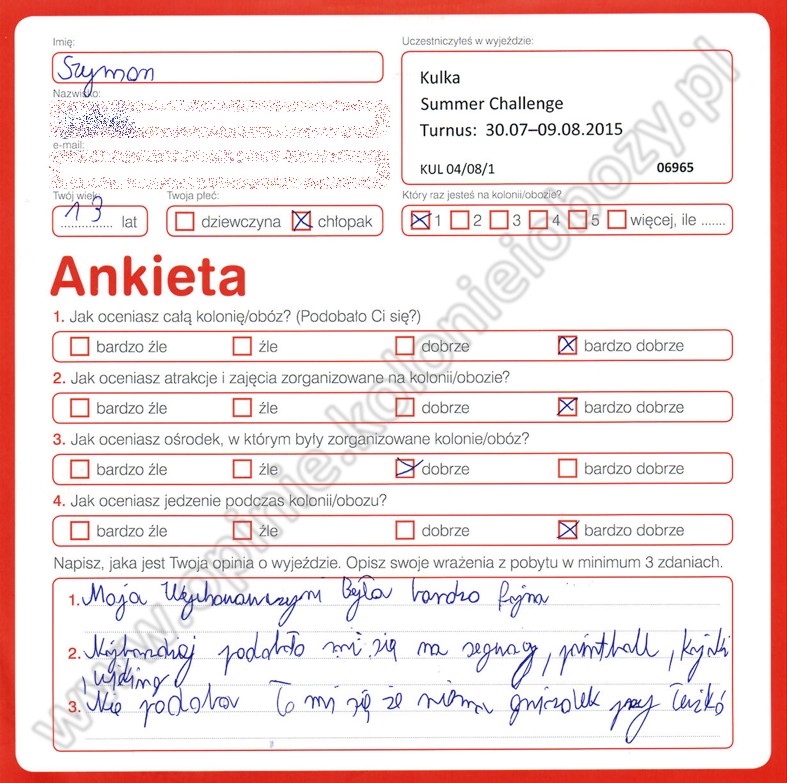 Imię:
Szymon
Nazwisko:
e-mail:
Twój wiek:
13 lat
Twoja płeć:
dziewczyna chłopak
Uczestniczyłeś w wyjeździe:
Kulka
Summer Challenge
Turnus: 30.07–09.08.2015
KUL 04/08/1 06965
Który raz jesteś na kolonii/obozie?
1 2 3 4 5 więcej, ile .......
Ankieta
1. Jak oceniasz całą kolonię/obóz? (Podobało Ci się?)
bardzo źle źle dobrze bardzo dobrze
2. Jak oceniasz atrakcje i zajęcia zorganizowane na kolonii/obozie?
bardzo źle źle dobrze bardzo dobrze
3. Jak oceniasz ośrodek, w którym były zorganizowane kolonie/obóz?
bardzo źle źle dobrze bardzo dobrze
4. Jak oceniasz jedzenie podczas kolonii/obozu?
bardzo źle źle dobrze bardzo dobrze
Napisz, jaka jest Twoja opinia o wyjeździe. Opisz swoje wrażenia z pobytu w minimum 3 zdaniach.
1. Moja Była bardzo fajna
2. podobało mi się na , paintball ,
3. Nie To mi się że niema przy
www.opinie.kolonieiobozy.pl